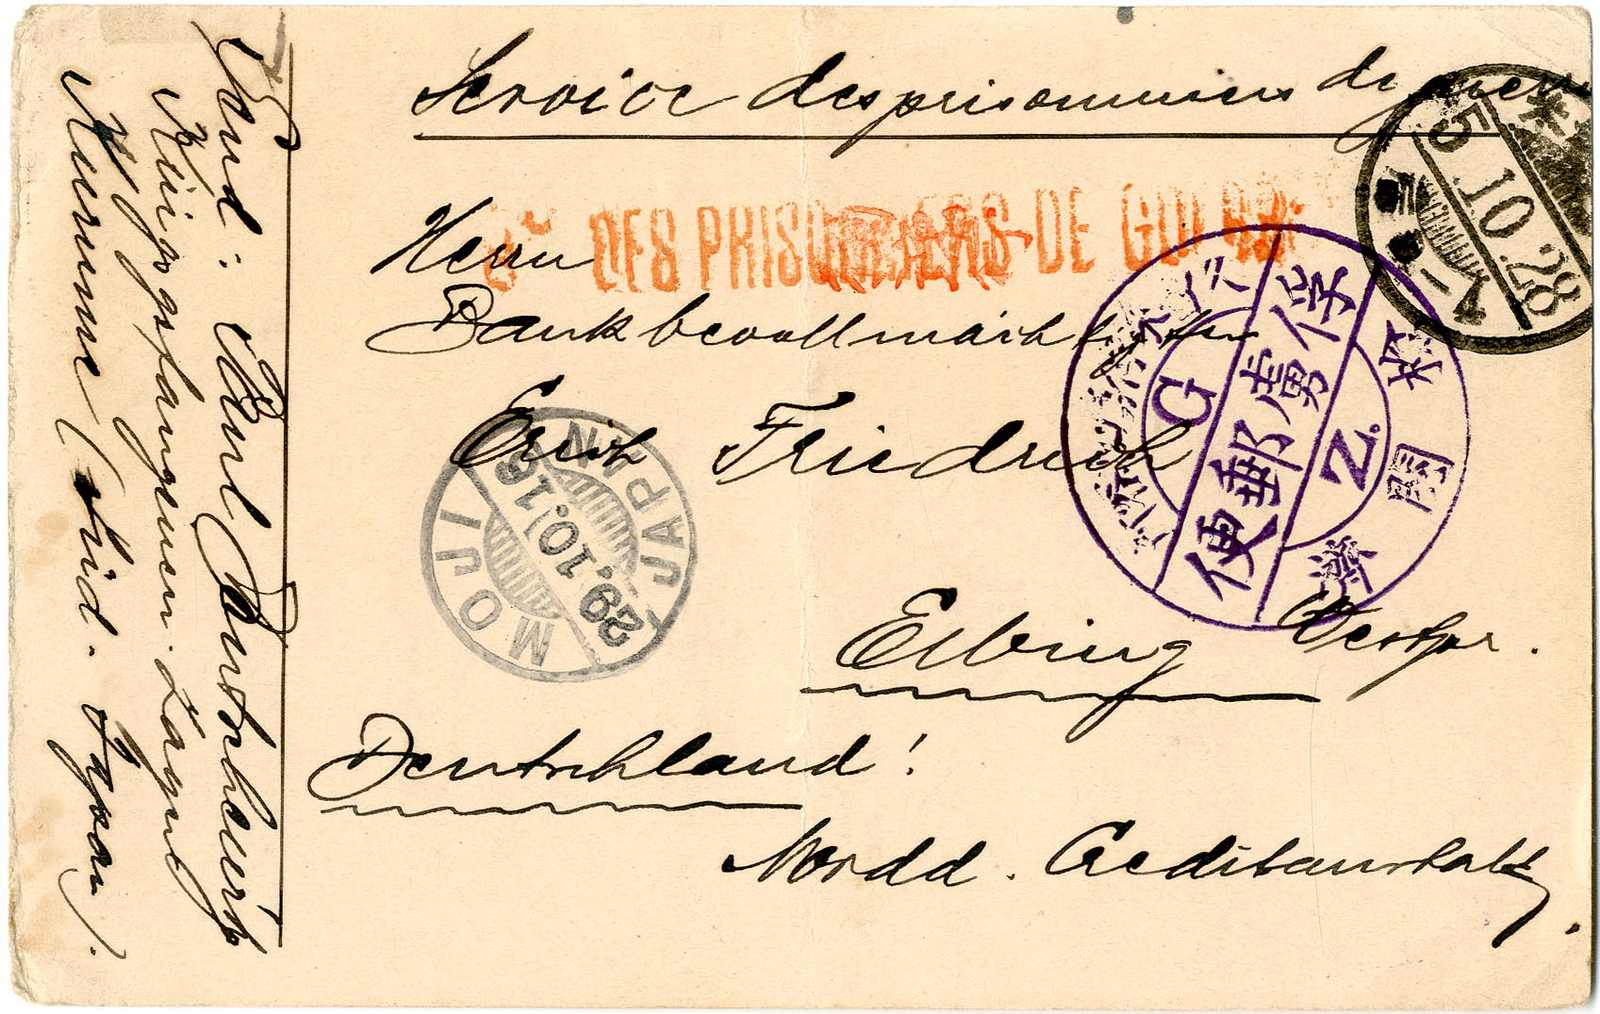 Service des prisonniers de guerre
DES PRISONNIERS DE GUERRE
Herrn
Bankbevollmächtigten
Erich Friedrich
Elbing Westpr.
Deutschland!
Nordd. Creditanstalt.
Kriegsgefangenen-Lager
Kurume (Süd-Japan).
MOJI
29.10.16
JAPAN
5.10.28
俘虜郵便
G. Z.
検閲済